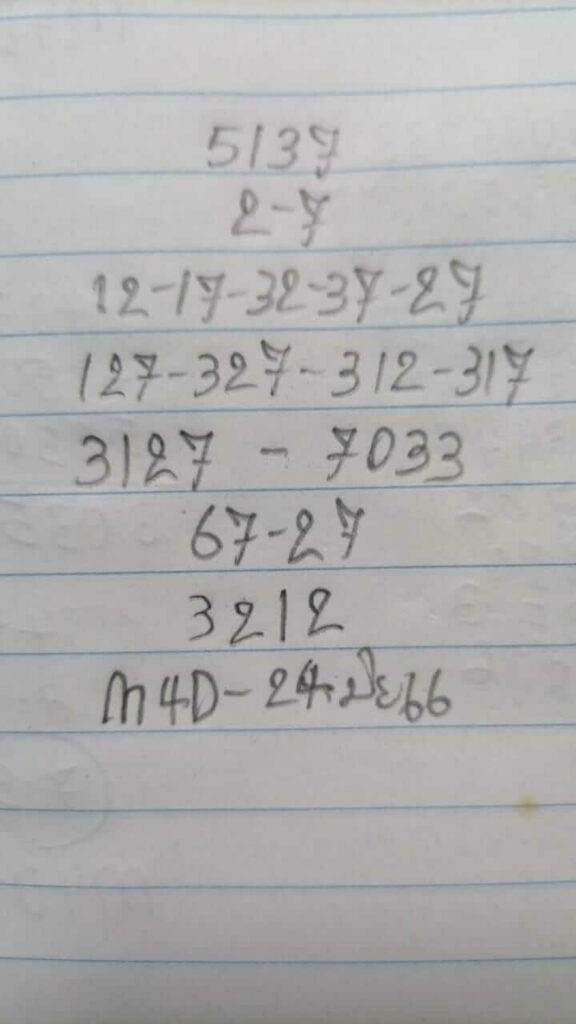 5137
2-7
12-17-32-37-27
127-327-312-317
3127 - 7033
67-27
3212
M4D-24.มิย66